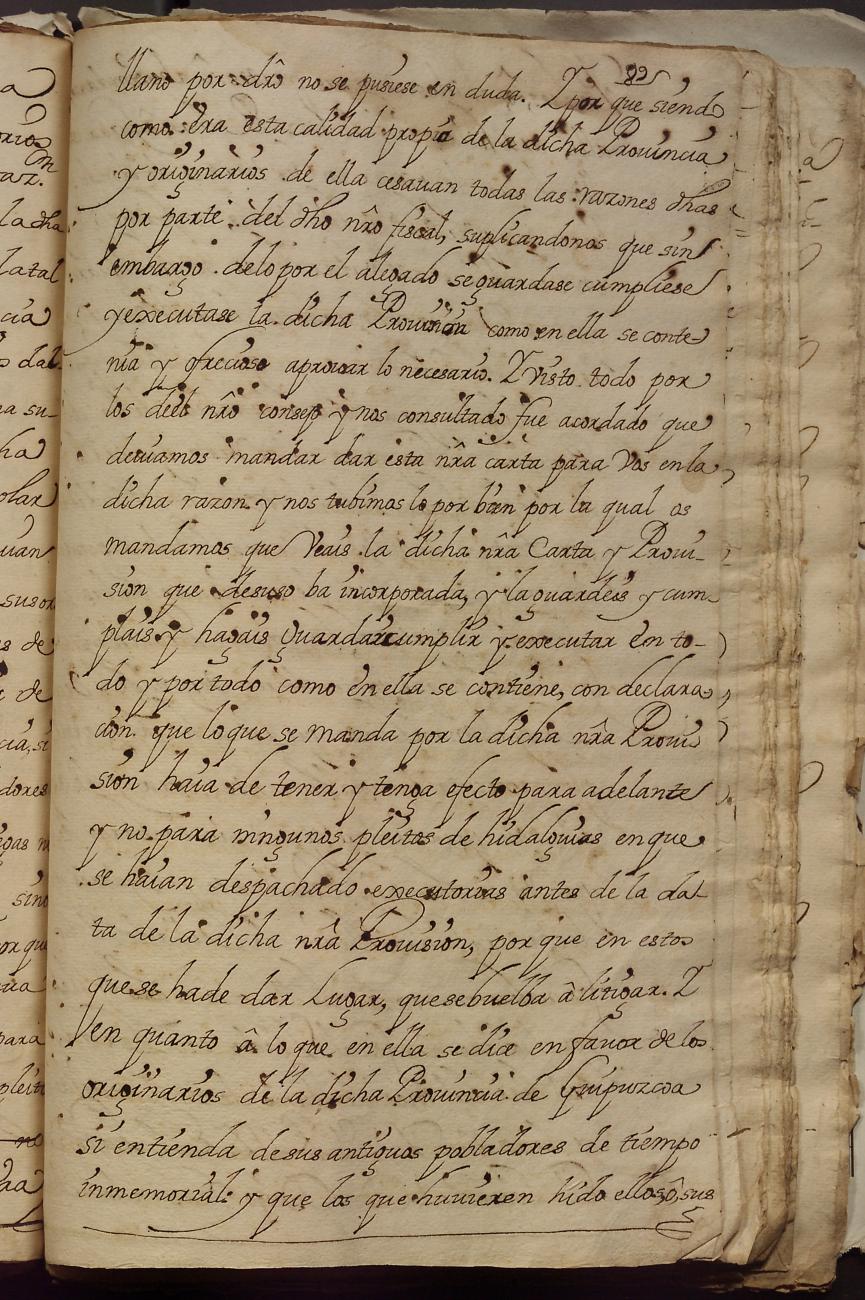 llano por dr̃o no se pusiese en duda. Y por que siendo
como era esta calidad propia de la dicha Prouincia
y originarios de ella cesauan todas las razones dhas
por parte del dho nr̃o fiscal, suplicandonos que sin
embargo de lo por el alegado se guardase cumpliese
y executase la dicha Prouision como en ella se conte-
nia y ofreciose aprouar lo necesario. Y visto todo por
los del nr̃o consejo y nos consultado fue acordado que
deuiamos mandar dar esta nr̃a carta para Vos en la
dicha razon y nos tubimos lo por bien por la qual os
mandamos que Veais la dicha nr̃a Carta y Proui-
sion que desuso ba incorporada, y la guardeis y cum-
plais y hagais Guardar cumplir y executar en to-
do y por todo como en ella se contiene, con declara-
cion que lo que se manda por la dicha nr̃a Proui
sion haia de tener y tenga efecto para adelante
y no para ningunos pleitos de hidalguias en que
se haian despachado executorias antes de la da-
ta de la dicha nr̃a Prouision, por que en estos
que se ha de dar Lugar, que se buelba â litigar. Y
en quanto â lo que en ella se dice en fauor de los
originarios de la dicha Prouincia de Guipuzcoa
si entienda de sus antiguos pobladores de tiempo
inmemorial: y que los que huuieren hido ellos, ô sus